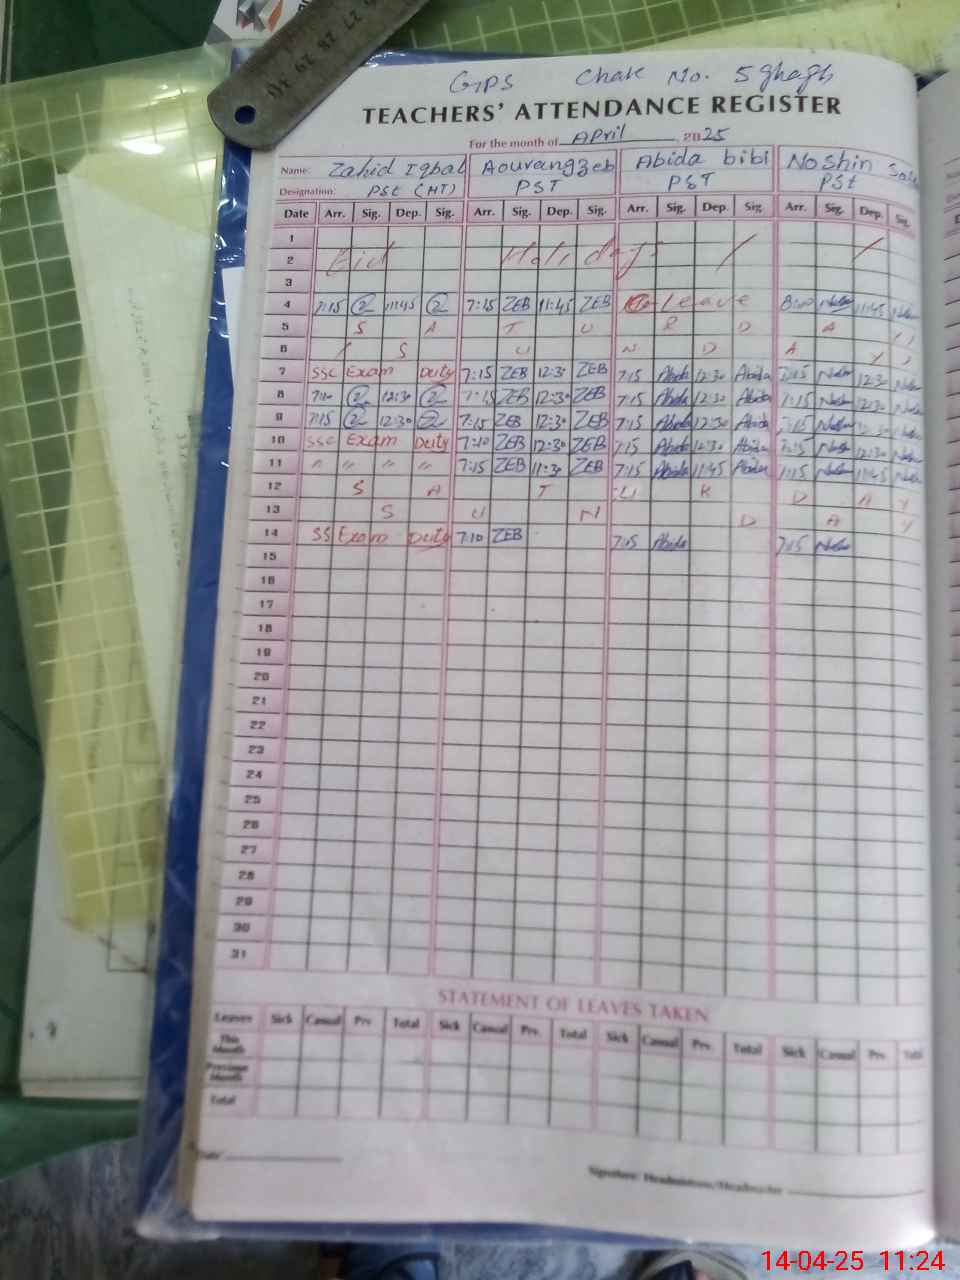 27 28 29 30
GPS Chak No. 5 ghagh
TEACHERS' ATTENDANCE REGISTER
For the month of April, 2025
Name: Zahid Iqbal Aourangzeb Abida bibi Noshin
Designation: PSt (HT) PST PST PSt
Date Arr. Sig. Dep. Sig. Arr. Sig. Dep. Sig. Arr. Sig. Dep. Sig. Arr. Sig. Dep. Sig.
1
2 Eid Holiday
3
4 7:15 11:45 7:15 ZEB 11:45 ZEB leave 8:00 11:45
5 S A T U R D A Y
6 S U N D A Y
7 SSC Exam Duty 7:15 ZEB 12:30 ZEB 7:15 Abida 12:30 Abida 7:15 12:30
8 7:10 12:30 7:15 ZEB 12:30 ZEB 7:15 Abida 12:30 Abida 7:15 12:30
9 7:15 12:30 7:15 ZEB 12:30 ZEB 7:15 Abida 12:30 Abida 7:15 12:30
10 SSC Exam Duty 7:10 ZEB 12:30 ZEB 7:15 Abida 12:30 Abida 7:15 12:30
11 " " " " 7:15 ZEB 11:30 ZEB 7:15 Abida 11:45 Abida 7:15 11:45
12 S A T U R D A Y
13 S U N D A Y
14 SS Exam Duty 7:10 ZEB 7:15 Abida 7:15
15
16
17
18
19
20
21
22
23
24
25
26
27
28
29
30
31
STATEMENT OF LEAVES TAKEN
Leaves Sick Casual Prv. Total Sick Casual Prv. Total Sick Casual Prv. Total Sick Casual Prv. Total
This Month
Previous Month
Total
Date
Signature: Headmistress/Headmaster
14-04-25 11:24